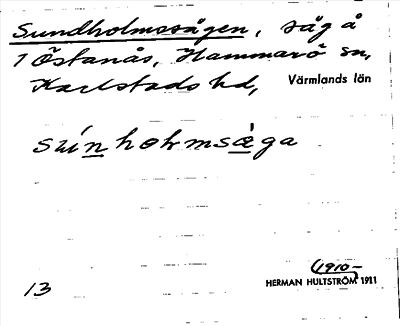 Sundholmssågen, såg å
1 Östanås, Hammarö sn,
Karlstads hd, Värmlands län
súnholmsåga
1910–
HERMAN HULTSTRÖM 1911
13